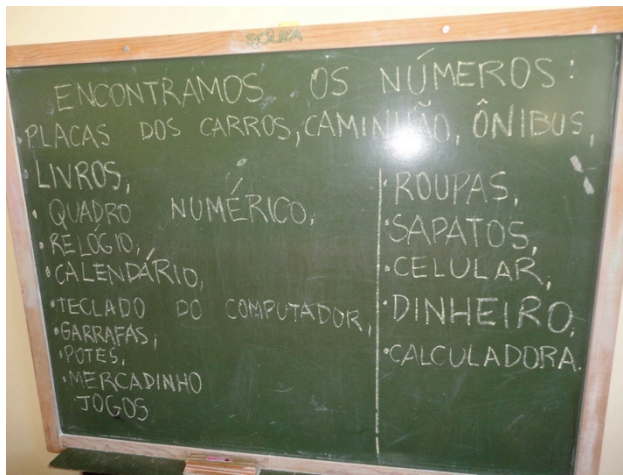 SOUZA
ENCONTRAMOS OS NÚMEROS:
•PLACAS DOS CARROS, CAMINHÃO, ÔNIBUS,
•LIVROS,
•QUADRO NUMÉRICO,
•RELÓGIO,
•CALENDÁRIO,
•TECLADO DO COMPUTADOR,
•GARRAFAS,
•POTES,
•MERCADINHO
JOGOS
•ROUPAS,
•SAPATOS,
•CELULAR,
•DINHEIRO,
•CALCULADORA.